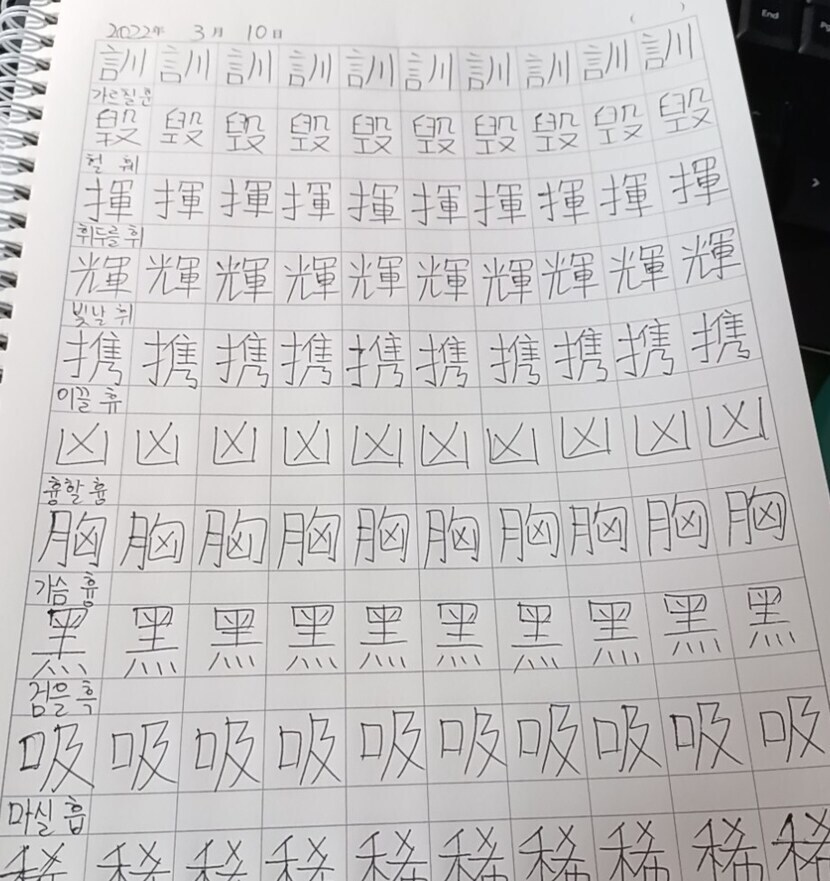 2022年 3月 10日 ( )
訓 訓 訓 訓 訓 訓 訓 訓 訓 訓
가르칠 훈
毀 毀 毀 毀 毀 毀 毀 毀 毀 毀
헐 훼
揮 揮 揮 揮 揮 揮 揮 揮 揮 揮
휘두를 휘
輝 輝 輝 輝 輝 輝 輝 輝 輝 輝
빛날 휘
携 携 携 携 携 携 携 携 携 携
이끌 휴
凶 凶 凶 凶 凶 凶 凶 凶 凶 凶
흉할 흉
胸 胸 胸 胸 胸 胸 胸 胸 胸 胸
가슴 흉
黑 黑 黑 黑 黑 黑 黑 黑 黑 黑
검을 흑
吸 吸 吸 吸 吸 吸 吸 吸 吸 吸
마실 흡
稀 稀 稀 稀 稀 稀 稀 稀 稀 稀
End